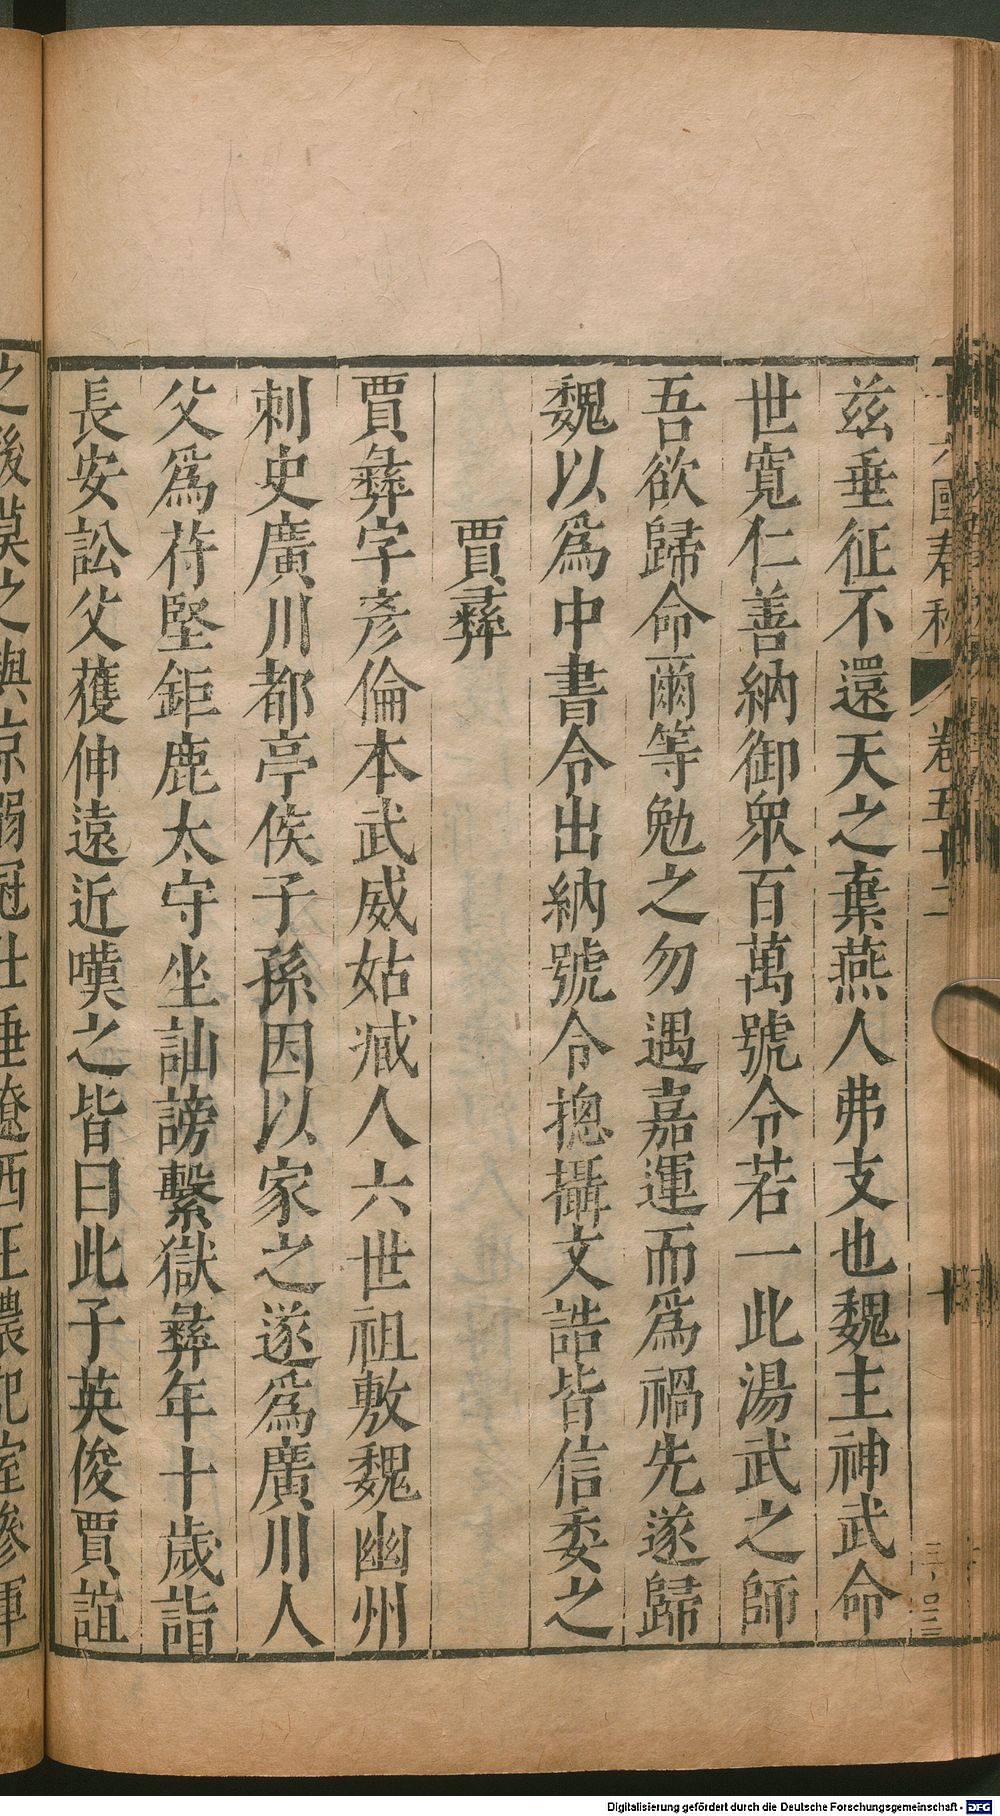 國春秋 卷五十二
茲垂征不還天之棄燕人弗支也魏主神武命
世寬仁善納御眾百萬號令若一此湯武之師
吾欲歸命爾等勉之勿遇嘉運而爲禍先遂歸
魏以爲中書令出納號令摠攝文誥皆信委之
賈彝
賈彝字彥倫本武威姑臧人六世祖敷魏幽州
刺史廣川都亭侯子孫因以家之遂爲廣川人
父爲苻堅鉅鹿太守坐訕謗繫獄彝年十歲詣
長安訟父獲伸遠近嘆之皆曰此子英俊賈誼
之後莫之與京弱冠仕垂遼西王農記室參軍
Digitalisierung gefördert durch die Deutsche Forschungsgemeinschaft - DFG